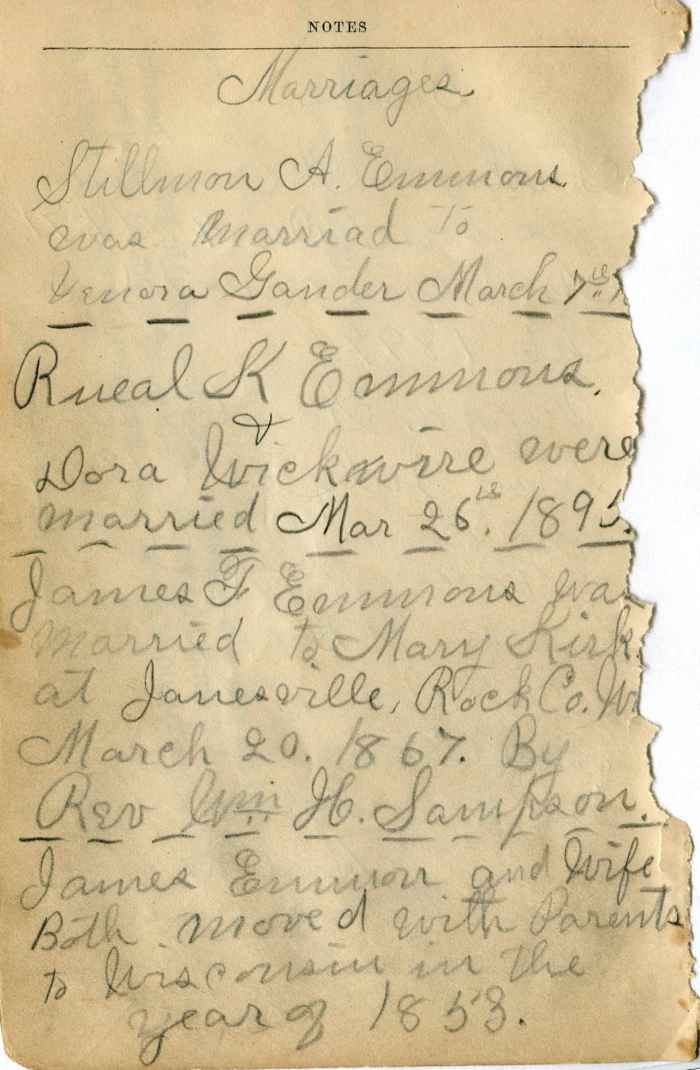 NOTES
Marriages
Stillmon A. Emmons
was Married To
Venora Gander March 7th
Rueal K Emmons.
&
Dora Wickwire were
married Mar 26th. 1895.
James F Emmons was
Married to Mary Kirk
at Janesville, Rock Co. Wi
March 20. 1867. By
Rev Wm H. Sampson.
James Emmons and Wife
Both moved with Parents
to Wisconsin in the
year of 1853.